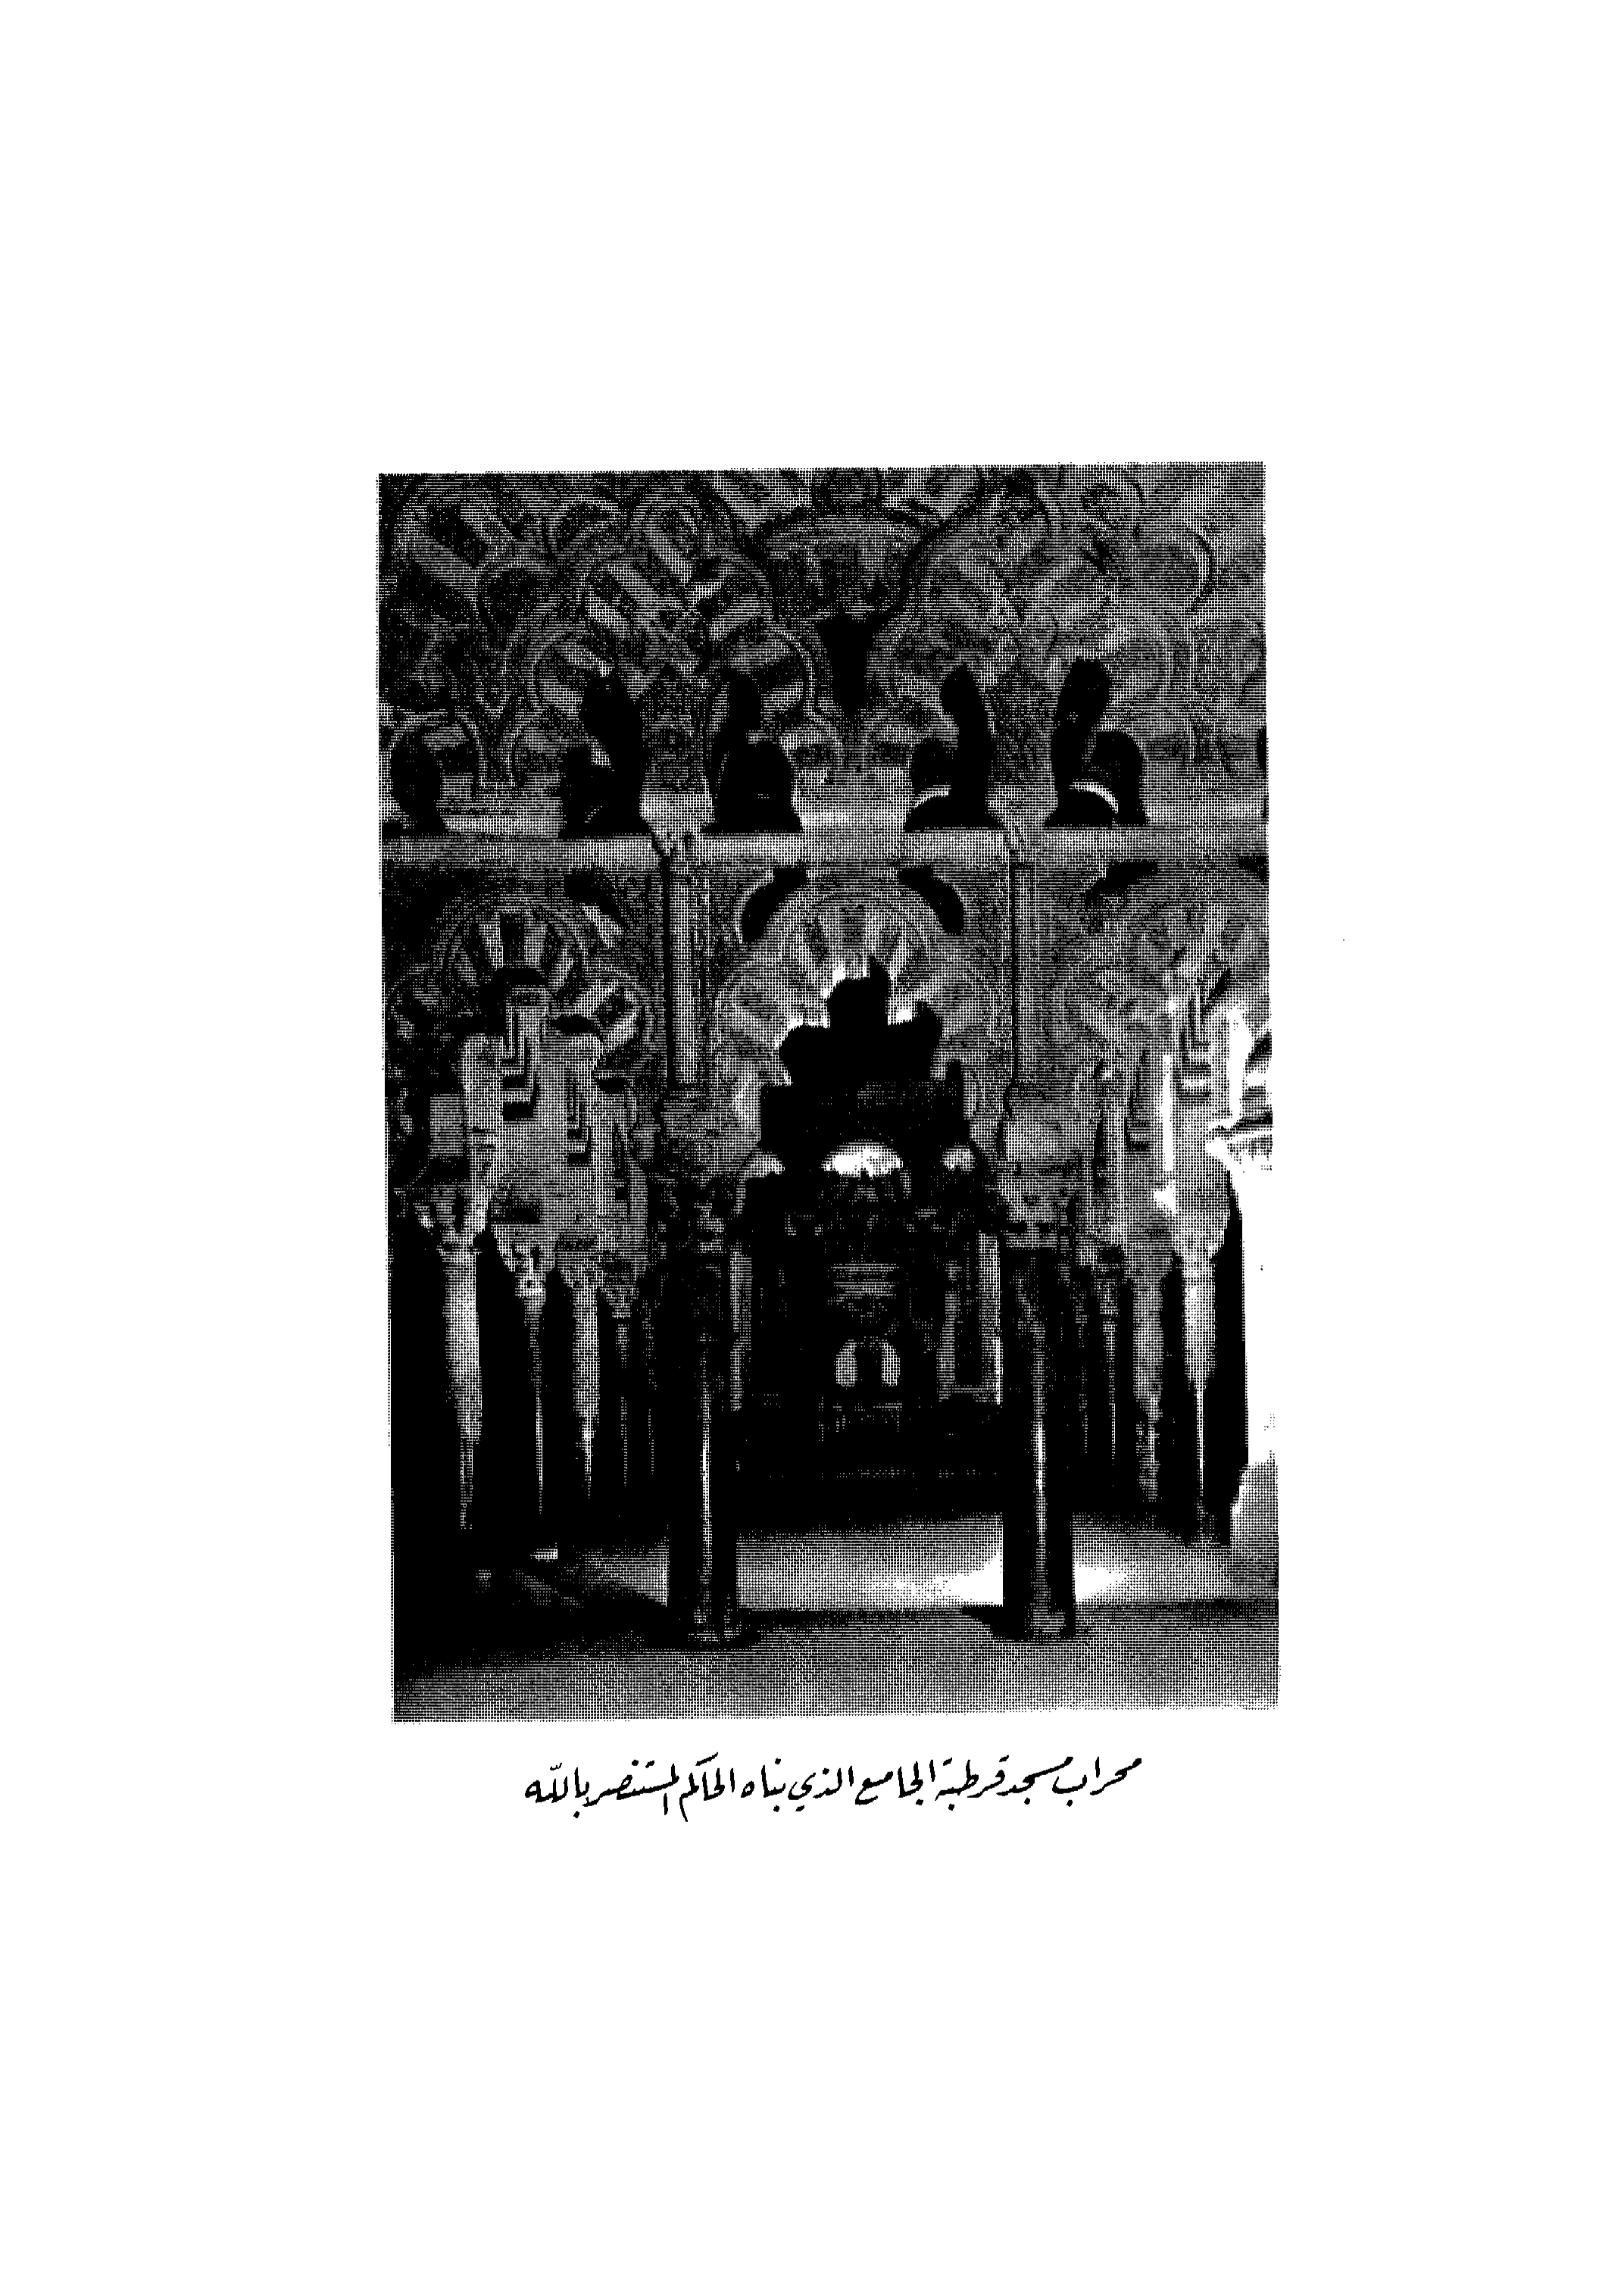 محراب مسجد قرطبة الجامع الذي بناه الحاكم المستنصر بالله